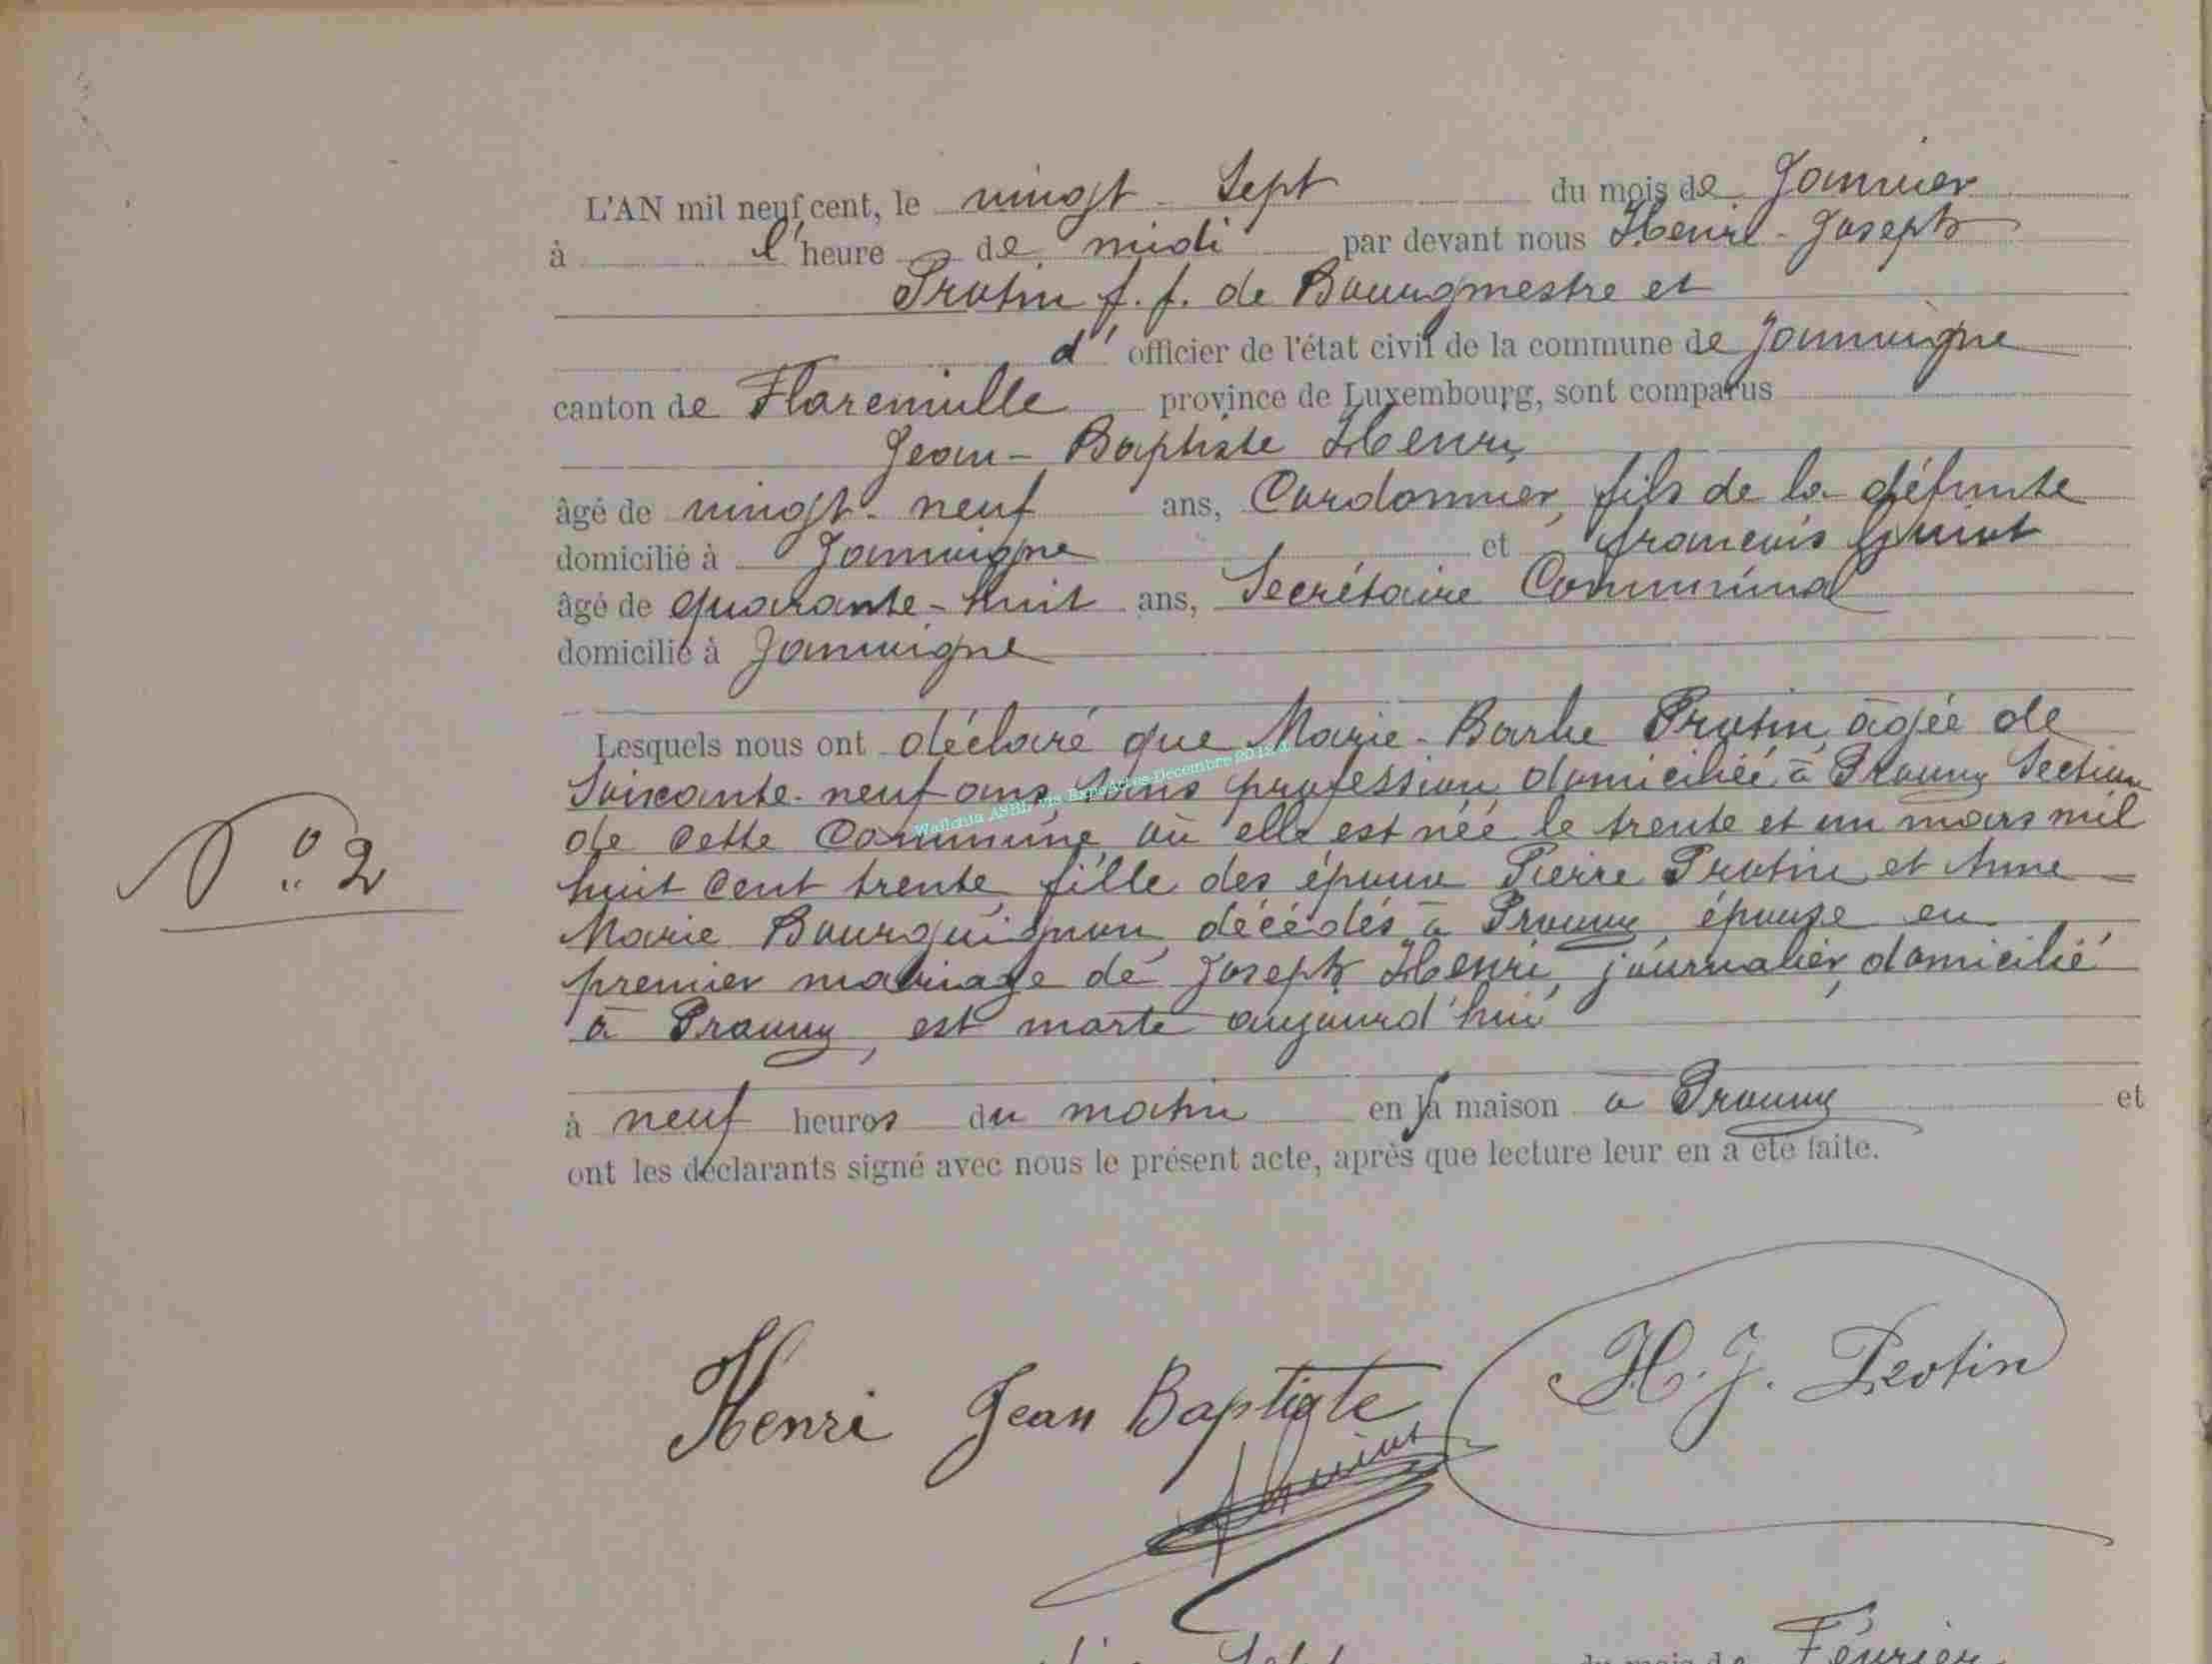 L'AN mil neuf cent, le vingt Sept du mois de Janvier
à l'heure de midi par devant nous Henri-Joseph
Protin f. f. de Bourgmestre et
d' officier de l'état civil de la commune de Jamoigne
canton de Florenville province de Luxembourg, sont comparus
Jean-Baptiste Henri,
âgé de vingt-neuf ans, Cordonnier, fils de la défunte
domicilié à Jamoigne et François Guiot
âgé de quarante-huit ans, Secrétaire Communal
domicilié à Jamoigne
Lesquels nous ont déclaré que Marie-Barbe Protin, agée de
Soixante-neuf ans, sans profession, domiciliée à Prouvy Section
Wallonia ASBL via ExpoActes-Décembre 2012
de cette Commune où elle est née le trente et un mars mil
N° 2
huit cent trente, fille des époux Pierre Protin et Anne-
Marie Bourguignon, décédés à Prouvy, épouse en
premier mariage de Joseph Henri, journalier, domicilié
à Prouvy, est morte aujourd'hui
à neuf heures du matin en sa maison a Prouvy et
ont les déclarants signé avec nous le présent acte, après que lecture leur en a été faite.
H. J. Protin
Henri Jean Baptiste
Guiot
Sept du mois de Février